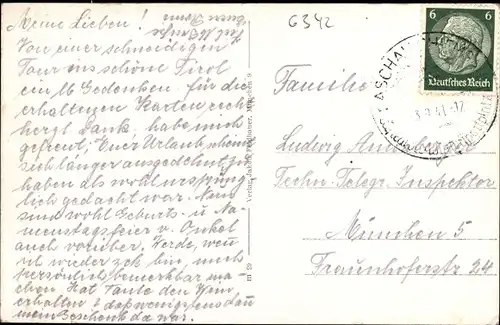 G342
Meine Lieben!
Von einer schneidigen
Tour ins schöne Tirol
ein lb Gedenken. Für die
erhaltenen Karten recht
herzl Dank, habe mich
gefreut; Euer Urlaub scheint
sich länger ausgedehnt zu
haben als wohl ursprüng-
lich gedacht war. Nun
sind wohl Geburts- u Na-
menstagsfeier v. Onkel
auch vorüber. Werde, wenn
ich wieder zk bin, mich
persönlich bemerkbar ma-
chen. Hat Tante den Wein
erhalten & dass wenigstens dann
mein Geschenk da war.
Euer
Familie
Ludwig
Techn. Telegr. Inspektor
München 5
Fraunhoferstr 24
6 6
Deutsches Reich
ASCHAU
41-17
München 9